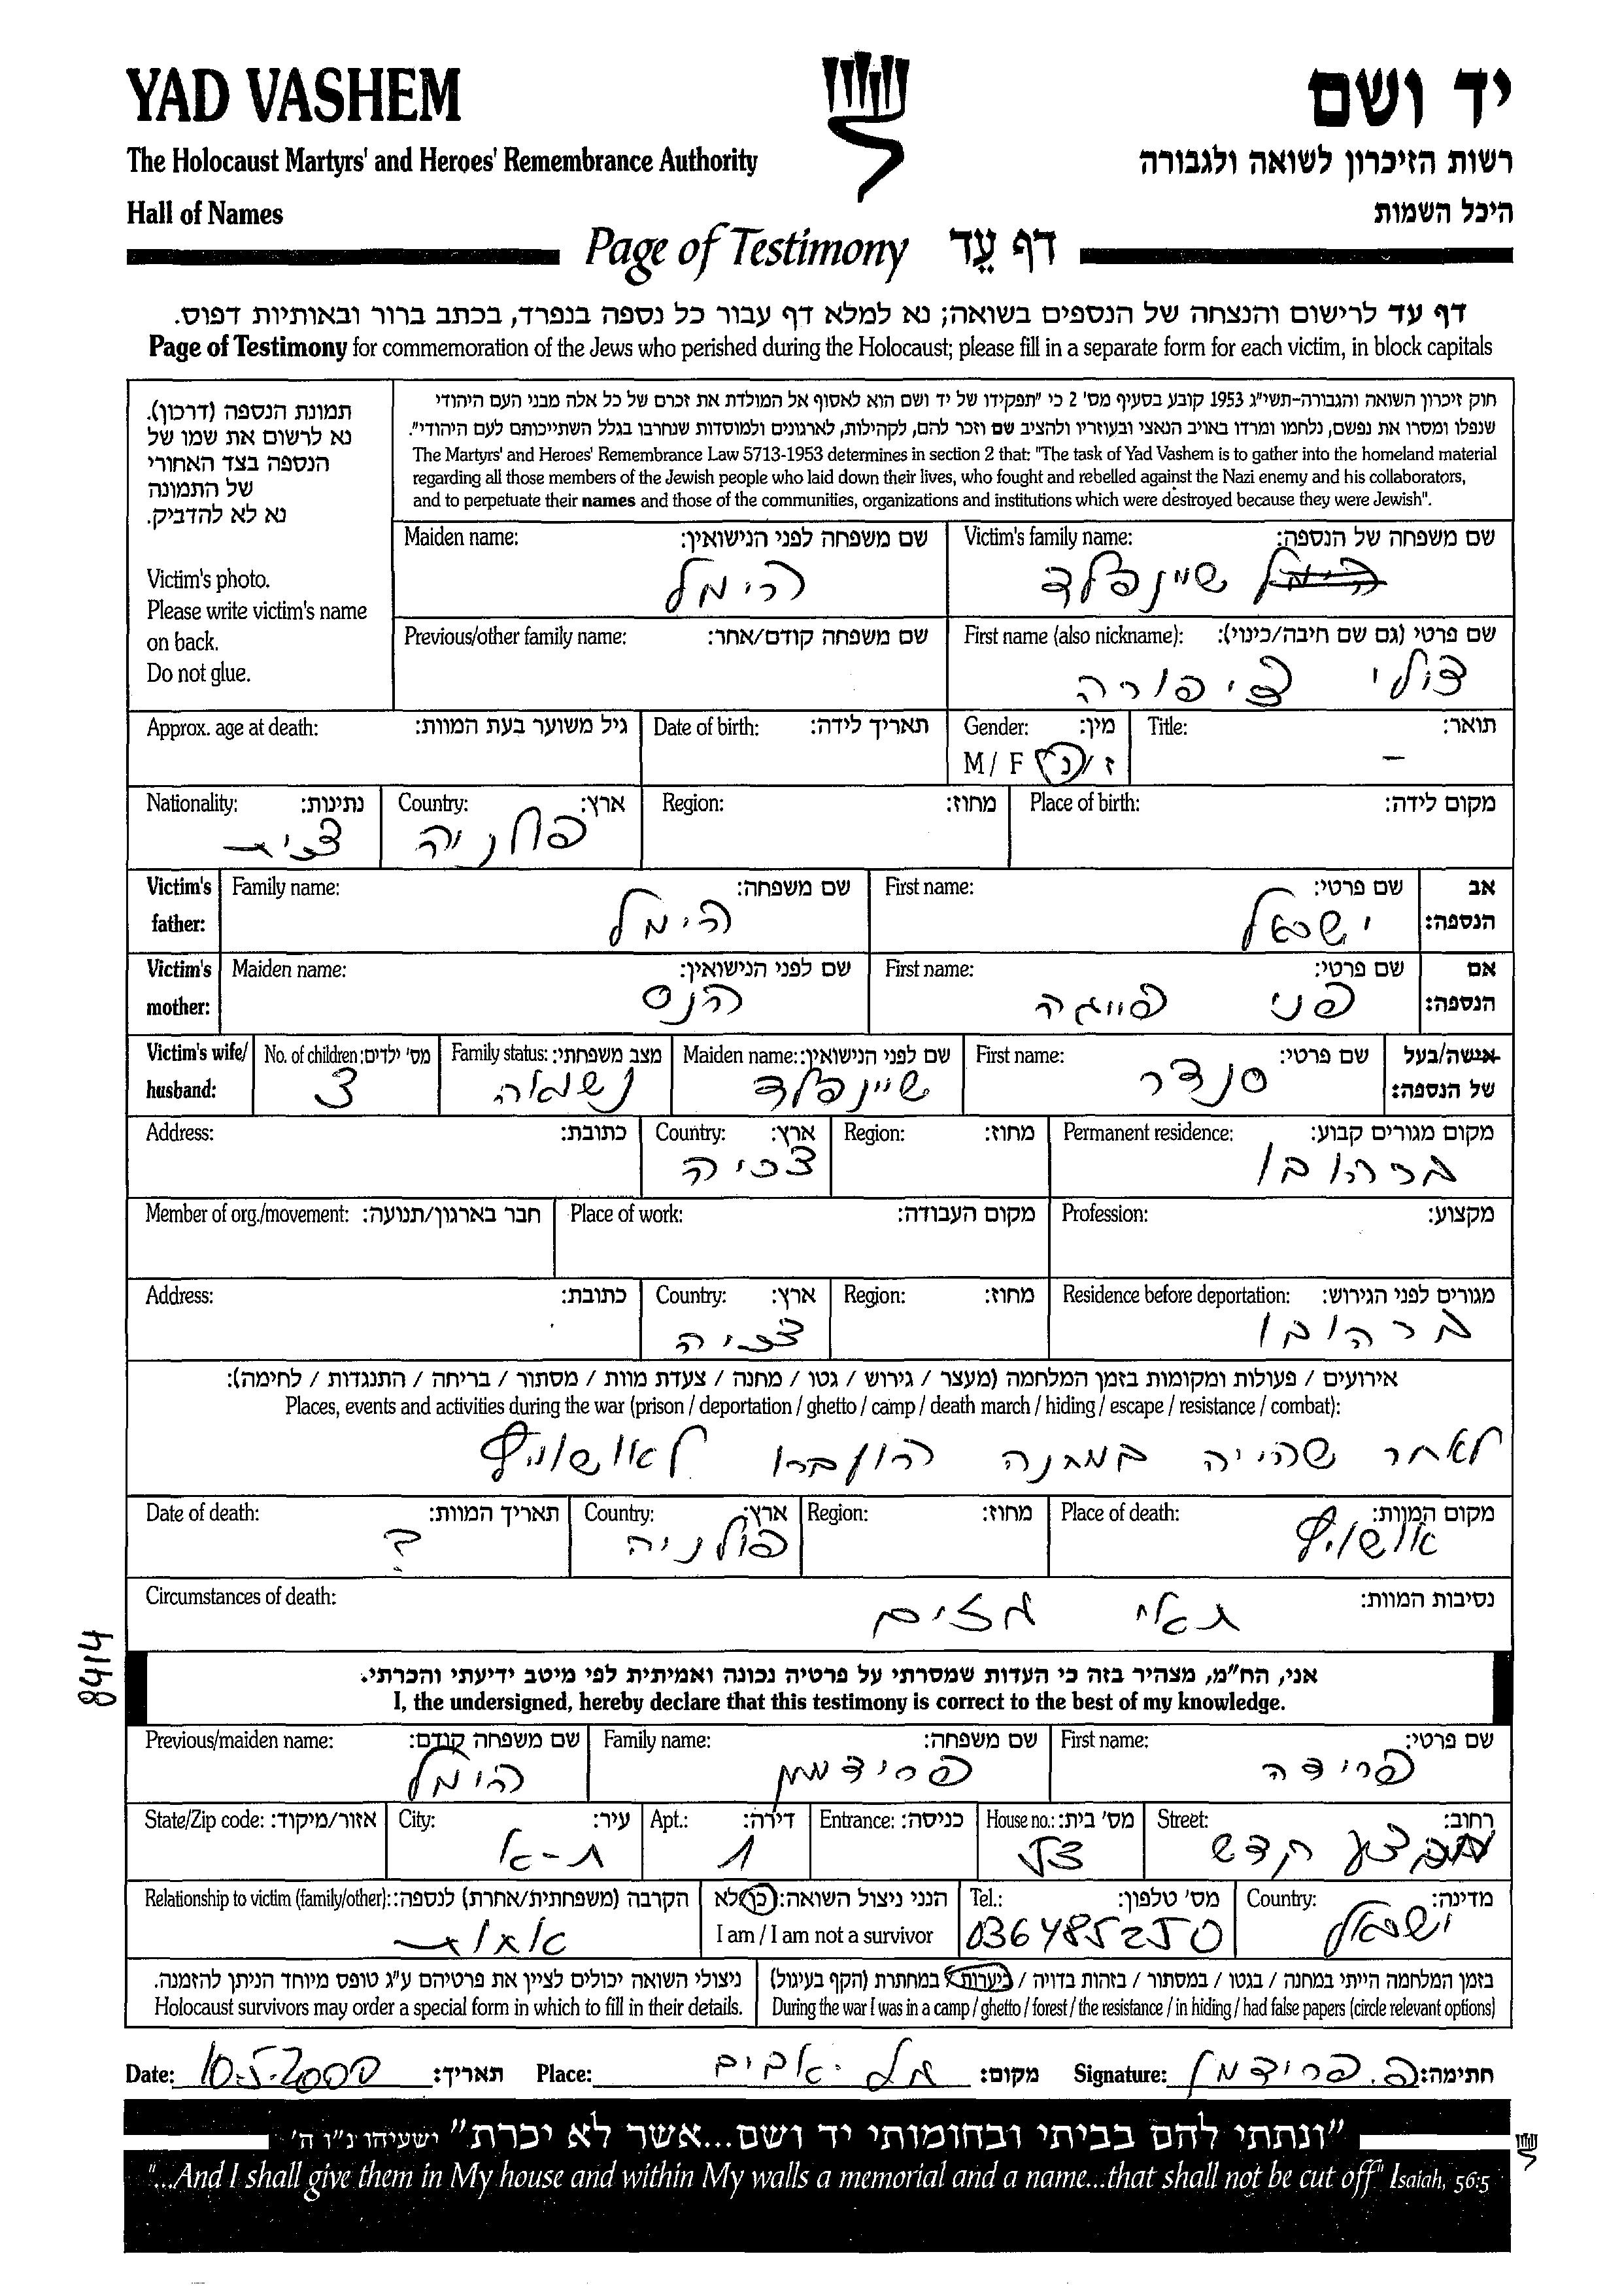 YAD VASHEM
יד ושם
The Holocaust Martyrs' and Heroes' Remembrance Authority
רשות הזיכרון לשואה ולגבורה
Hall of Names
היכל השמות
Page of Testimony דף עֵד
דף עד לרישום והנצחה של הנספים בשואה; נא למלא דף עבור כל נספה בנפרד, בכתב ברור ובאותיות דפוס.
Page of Testimony for commemoration of the Jews who perished during the Holocaust; please fill in a separate form for each victim, in block capitals
תמונת הנספה (דרכון).
נא לרשום את שמו של
הנספה בצד האחורי
של התמונה
נא לא להדביק.
Victim's photo.
Please write victim's name
on back.
Do not glue.
חוק זיכרון השואה והגבורה-תשי"ג 1953 קובע בסעיף מס' 2 כי "תפקידו של יד ושם הוא לאסוף אל המולדת את זכרם של כל אלה מבני העם היהודי
שנפלו ומסרו את נפשם, נלחמו ומרדו באויב הנאצי ובעוזריו ולהציב שם וזכר להם, לקהילות, לארגונים ולמוסדות שנחרבו בגלל השתייכותם לעם היהודי".
The Martyrs' and Heroes' Remembrance Law 5713-1953 determines in section 2 that: "The task of Yad Vashem is to gather into the homeland material
regarding all those members of the Jewish people who laid down their lives, who fought and rebelled against the Nazi enemy and his collaborators,
and to perpetuate their names and those of the communities, organizations and institutions which were destroyed because they were Jewish".
Victim's family name: שם משפחה של הנספה:
הימל שיינפלד
Maiden name: שם משפחה לפני הנישואין:
הימל
First name (also nickname): שם פרטי (גם שם חיבה/כינוי):
צולי ציפורה
Previous/other family name: שם משפחה קודם/אחר:
Title: תואר:
–
Gender: מין:
M / F ז / נ
Date of birth: תאריך לידה:
Approx. age at death: גיל משוער בעת המוות:
Place of birth: מקום לידה:
Region: מחוז:
Country: ארץ:
פולניה
Nationality: נתינות:
צ'כית
Victim's father: אב הנספה:
First name: שם פרטי:
ישראל
Family name: שם משפחה:
הימל
Victim's mother: אם הנספה:
First name: שם פרטי:
פני פייגה
Maiden name: שם לפני הנישואין:
הנס
Victim's wife/ husband: אישה/בעל של הנספה:
First name: שם פרטי:
סנדר
Maiden name: שם לפני הנישואין:
שיינפלד
Family status: מצב משפחתי:
נשואה
No. of children: מס' ילדים:
3
Permanent residence: מקום מגורים קבוע:
ברהובו
Region: מחוז:
Country: ארץ:
צכיה
Address: כתובת:
Profession: מקצוע:
Place of work: מקום העבודה:
Member of org./movement: חבר בארגון/תנועה:
Residence before deportation: מגורים לפני הגירוש:
ברהובו
Region: מחוז:
Country: ארץ:
צכיה
Address: כתובת:
אירועים / פעולות ומקומות בזמן המלחמה (מעצר / גירוש / גטו / מחנה / צעדת מוות / מסתור / בריחה / התנגדות / לחימה):
Places, events and activities during the war (prison / deportation / ghetto / camp / death march / hiding / escape / resistance / combat):
לאחר שהייה במחנה הועברו לאושוויץ
Place of death: מקום המוות:
אושויץ
Region: מחוז:
Country: ארץ:
פולניה
Date of death: תאריך המוות:
?
Circumstances of death: נסיבות המוות:
תאי גזים
8414
אני, הח"מ, מצהיר בזה כי העדות שמסרתי על פרטיה נכונה ואמיתית לפי מיטב ידיעתי והכרתי.
I, the undersigned, hereby declare that this testimony is correct to the best of my knowledge.
First name: שם פרטי:
פרידה
Family name: שם משפחה:
פרידמן
Previous/maiden name: שם משפחה קודם:
הימל
Street: רחוב:
מבצע קדש
House no.: מס' בית:
52
Entrance: כניסה:
Apt.: דירה:
1
City: עיר:
ת-א
State/Zip code: אזור/מיקוד:
Country: מדינה:
ישראל
Tel.: מס' טלפון:
036485250
הנני ניצול השואה: כן/לא
I am / I am not a survivor
Relationship to victim (family/other): הקרבה (משפחתית/אחרת) לנספה:
אחות
בזמן המלחמה הייתי במחנה / בגטו / במסתור / בזהות בדויה / ביערות / במחתרת (הקף בעיגול)
During the war I was in a camp / ghetto / forest / the resistance / in hiding / had false papers (circle relevant options)
ניצולי השואה יכולים לציין את פרטיהם ע"ג טופס מיוחד הניתן להזמנה.
Holocaust survivors may order a special form in which to fill in their details.
Date: 10.5.2000 תאריך: Place: תל-אביב מקום: Signature: פ. פרידמן חתימה:
"ונתתי להם בביתי ובחומותי יד ושם...אשר לא יכרת" ישעיהו נ"ו ה'
"...And I shall give them in My house and within My walls a memorial and a name...that shall not be cut off" Isaiah, 56:5